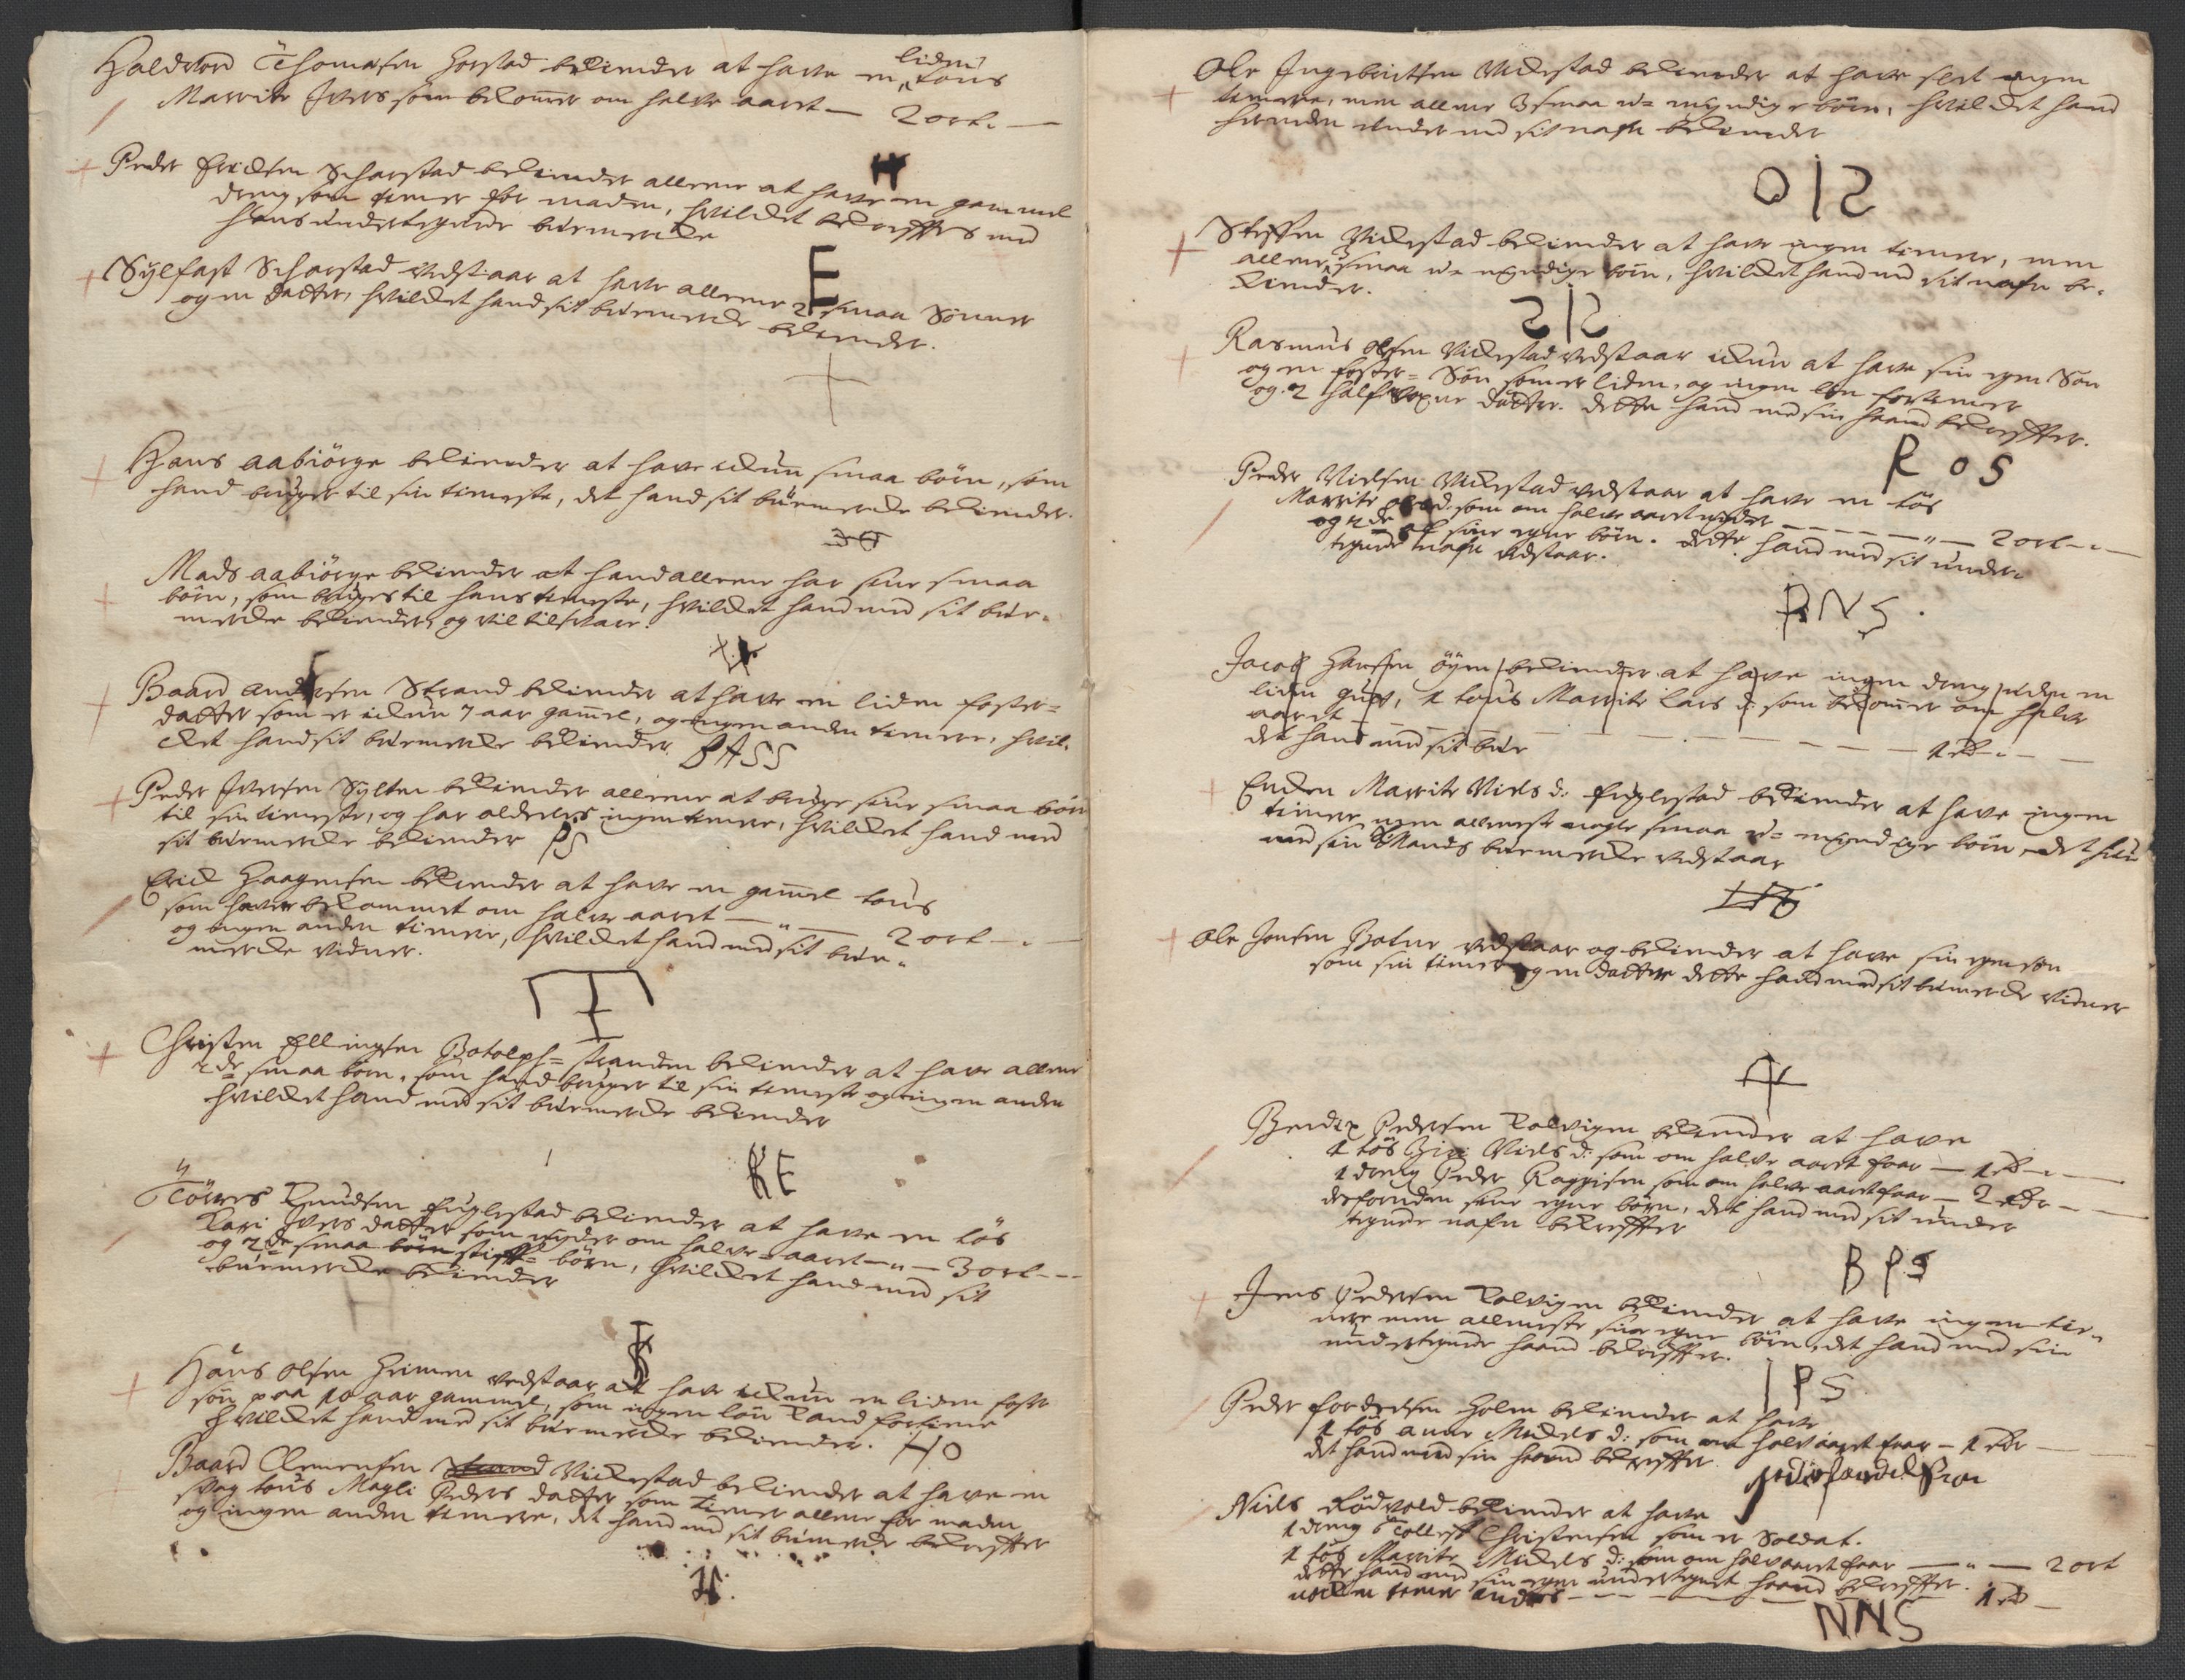 Haldvord Thomesen Horstad bekiender at have en liden tøus
Marrite Ivers som bekommer om halve aaret — 2 ort
H
Peder Ericksen Scharstad bekiender alleene at have en gammel
dreng som tiener for maden, hvilcket bekrefftes med
hans undertegnede bumercke
E
Sylfast Scharstad vedstaar at have alleene 2 smaa Sønner
og en datter, hvilcket hand sit bumercke bekiender.
Hans Aabiørge bekiender at have ickun smaa børn, som
hand bruger til sin tieneste, det hand sit bumercke bekiender.
Mads Aabiørge bekiender at hand alleene har sine smaa
børn, som bruges til hans tieneste, hvilcket hand med sit bue-
mercke bekiender, og vil tilstaae.
Baard Andersen Strand bekiender at have en liden foster-
datter som er ickun 7 aar gammel, og ingen anden tienere, hvil-
cket hand sit bumercke bekiender BASS
Peder Iversen Sylten bekiender alleene at bruge sine smaa børn
til sin tieneste, og har alderles ingen tienere, hvilcket hand med
sit bumercke bekiender PS
Erick Haagensen bekiender at have en gammel tøus
som haver bekommet om halve aaret — " — 2 ort
og ingen anden tienere, hvilcket hand med sit bue-
mercke vidner.
Christen Ellingsen Botolph-stranden bekiender at have alleene
2de smaa børn, som hand bruger til sin tieneste og ingen anden
hvilcket hand med sit bumercke bekiender
KE
Tørres Knudsen Fuglestad bekiender at have en tøs
Kari Ivers datter som nyder om halve-aaret — " — 3 ort
og 2de smaa børn stiff-børn, hvilcket hand med sit
bumercke bekiender
Hans Olsen Hrimen vedstaar at have ickun en liden foster
søn paa 10 aar gammel, som ingen løn kand fortiene
hvilcket hand med sit bumercke bekiender. HO
Baard Clemensen Strand Vickestad bekiender at have en
svag tøus Magli Peders datter som tiener alleene for maden
og ingen anden tienere, det hand med sit bumercke bekreffter
Ole Ingebrictsen Vickestad bekiender at have slet ingen
tienere, men alleene 3 smaa u-myndige børn, hvilcket hand
herneden under med sit nafn bekiender
OIS
Steffen Vickestad bekiender at have ingen tienere, men
alleene smaa u-myndige børn, hvilcket hand med sit nafn be-
kiender.
SIS
Rasmus Olsen Vickestad vedstaar ickun at have sin egen Søn
og en foster-Søn som er liden, og ingen løn fortiener
og 2 halfvoxne døttre. dette hand med sin haand bekreffter.
ROS
Peder Nielsen Vickestad vedstaar at have en tøs
Marrite som om halve aaret nyder — " — 2 ort
og 2de af sine egne børn. dette hand med sit under-
tegnede nafn vedstaar.
PNS.
Jacob Hansen Øyen bekiender at have ingen dreng uden en
liden gut, 1 tøus Marrite Lars d: som bekommer om halve
aaret — 1 rd
det hand med sit bue
Encken Marrite Niels d: Fuglestad bekiender at have ingen
tienere men alleneste nogle smaa u-myndige børn, det hun
med sin Mands bumercke vedstaar
Ole Jensen Botne vedstaar og bekiender at have sin egen søn
som sin tiener og en datter dette hand med sit bumercke vidner
Bendix Pedersen Tolvigen bekiender at have
1 tøs Niels d: som om halve aaret faar — 1 rd
1 dreng Peder som om halve aaret faar — 2 rdr
desforuden sine egne børn, det hand med sit under
tegnede nafn bekreffter
BPS
Jens Pedersen Tolvigen bekiender at have ingen tie-
nere men alleneste sine egne børn, det hand med sin
undertegnede haand bekreffter.
IPS
Peder Holm bekiender at have
1 tøs Anne Mickels d: som om halv aaret faar — 1 rdr
det hand med sin haand bekreffter
Niels Rødvold bekiender at have
1 dreng Tolleff Christensen som er Soldat.
1 tøs Marrite Mickels d: som om halv aaret faar — " — 2 ort
dette hand med sin egen undertegnet haand bekreffter.
nock en tiener Anders — 1 rd
NNS